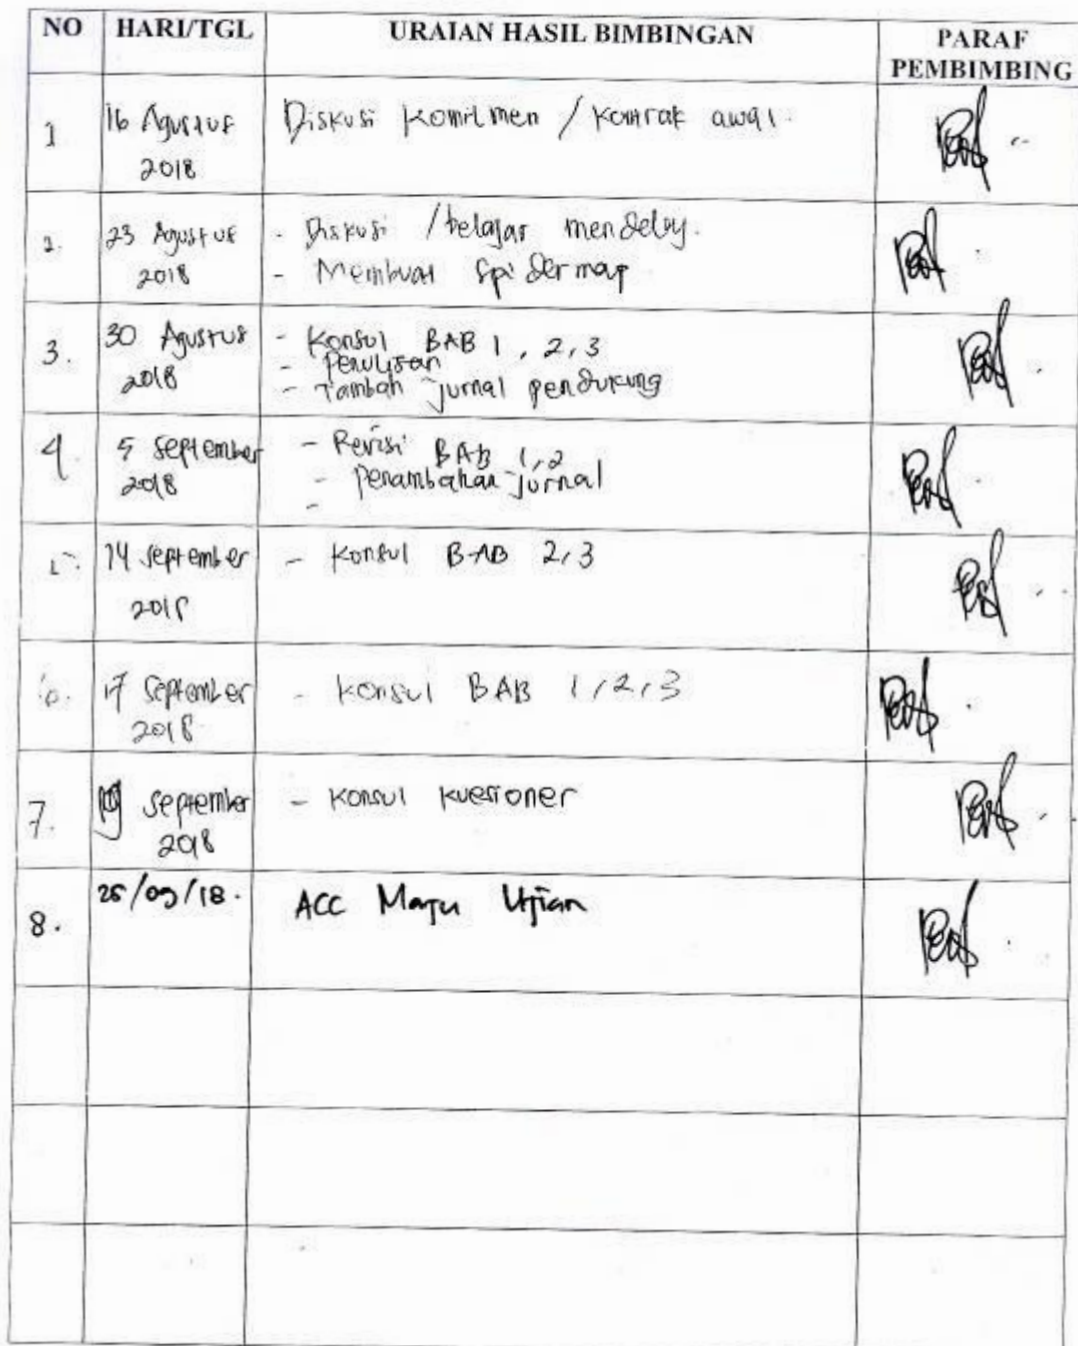 NO HARI/TGL URAIAN HASIL BIMBINGAN PARAF PEMBIMBING
1 16 Agustus 2018 Diskusi Komitmen / Kontrak awal.
2. 23 Agustus 2018 - Diskusi / belajar mendeley.
- Membuat Spidermap
3. 30 Agustus 2018 - Konsul BAB 1, 2, 3
- Penulisan
- Tambah jurnal pendukung
4. 5 September 2018 - Revisi BAB 1, 2
- Penambahan jurnal
-
14 September 2018 - Konsul BAB 2, 3
6. 17 September 2018 - Konsul BAB 1, 2, 3
7. September 2018 - Konsul kuesioner
8. /09/18. ACC Maju Ujian